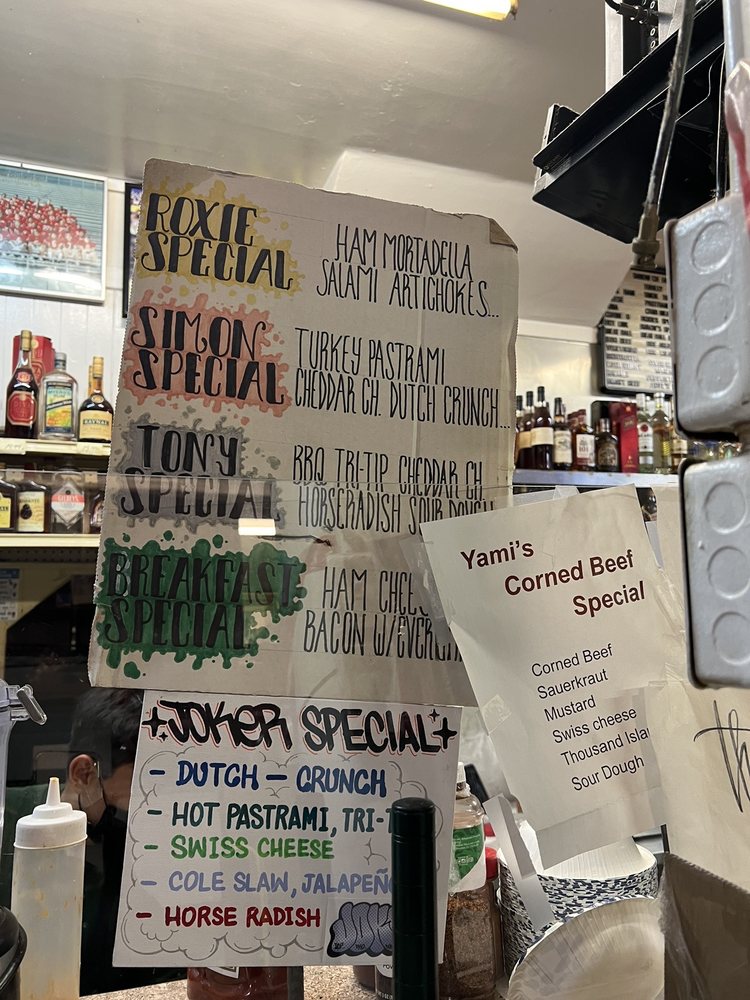 ROXIE
SPECIAL
HAM MORTADELLA
SALAMI ARTICHOKES...
SIMON
SPECIAL
TURKEY PASTRAMI
CHEDDAR CH. DUTCH CRUNCH...
TONY
SPECIAL
BBQ TRI-TIP CHEDDAR CH.
HORSERADISH SOUR DOUGH
BREAKFAST
SPECIAL
HAM
BACON
Yami's
Corned Beef
Special
Corned Beef
Sauerkraut
Mustard
Swiss cheese
Thousand
Sour Dough
JOKER SPECIAL
- DUTCH - CRUNCH
- HOT PASTRAMI,
- SWISS CHEESE
- COLE SLAW,
- HORSE RADISH